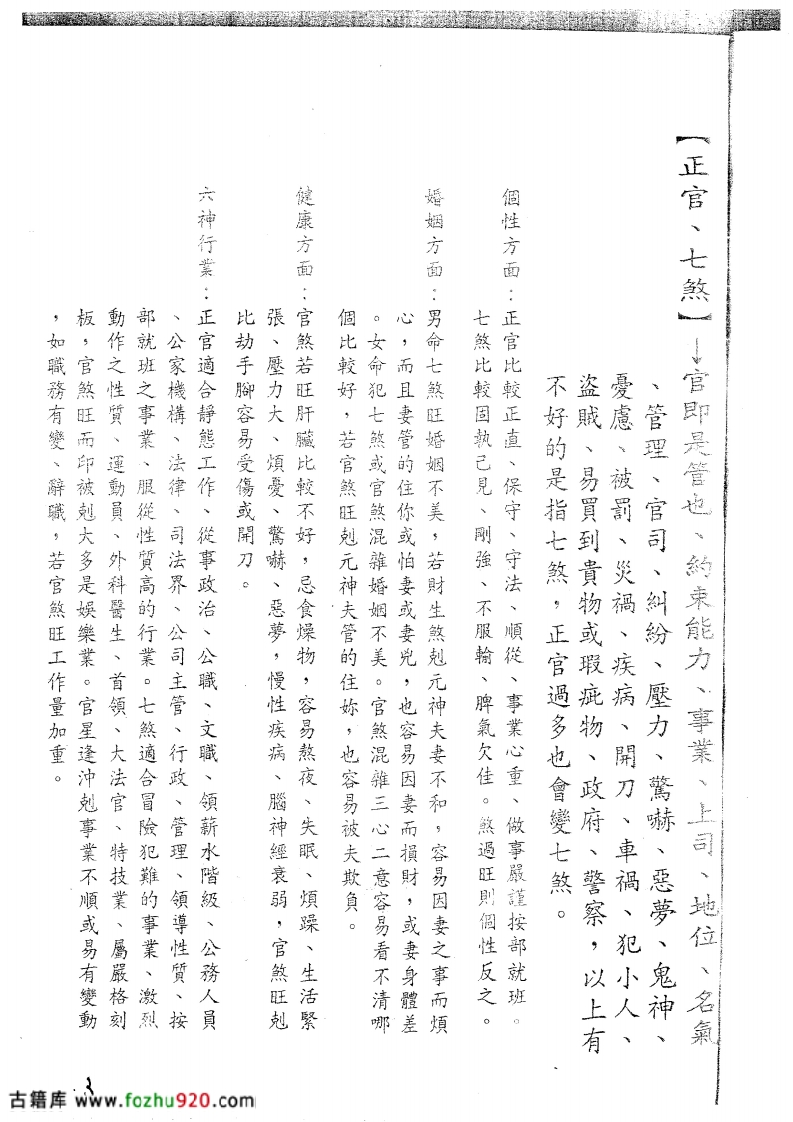 【正官、七煞】→官即是管也、約束能力、事業、上司、地位、名氣
、管理、官司、糾紛、壓力、驚嚇、惡夢、鬼神、
憂慮、被罰、災禍、疾病、開刀、車禍、犯小人、
盜賊、易買到貴物或瑕疵物、政府、警察，以上有
不好的是指七煞，正官過多也會變七煞。
個性方面：正官比較正直、保守、守法、順從、事業心重、做事嚴謹按部就班。
七煞比較固執己見、剛強、不服輸、脾氣欠佳。煞過旺則個性反之。
婚姻方面：男命七煞旺婚姻不美，若財生煞剋元神夫妻不和，容易因妻之事而煩
心，而且妻管的住你或怕妻或妻兇，也容易因妻而損財，或妻身體差
。女命犯七煞或官煞混雜婚姻不美。官煞混雜三心二意容易看不清哪
個比較好，若官煞旺剋元神夫管的住妳，也容易被夫欺負。
健康方面：官煞若旺肝臟比較不好，忌食燥物，容易熬夜、失眠、煩躁、生活緊
張、壓力大、煩憂、驚嚇、惡夢，慢性疾病、腦神經衰弱，官煞旺剋
比劫手腳容易受傷或開刀。
六神行業：正官適合靜態工作、從事政治、公職、文職、領薪水階級、公務人員
、公家機構、法律、司法界、公司主管、行政、管理、領導性質、按
部就班之事業、服從性質高的行業。七煞適合冒險犯難的事業、激烈
動作之性質、運動員、外科醫生、首領、大法官、特技業、屬嚴格刻
板，官煞旺而印被剋大多是娛樂業。官星逢沖剋事業不順或易有變動
，如職務有變、辭職，若官煞旺工作量加重。
3
古籍库 www.fozhu920.com